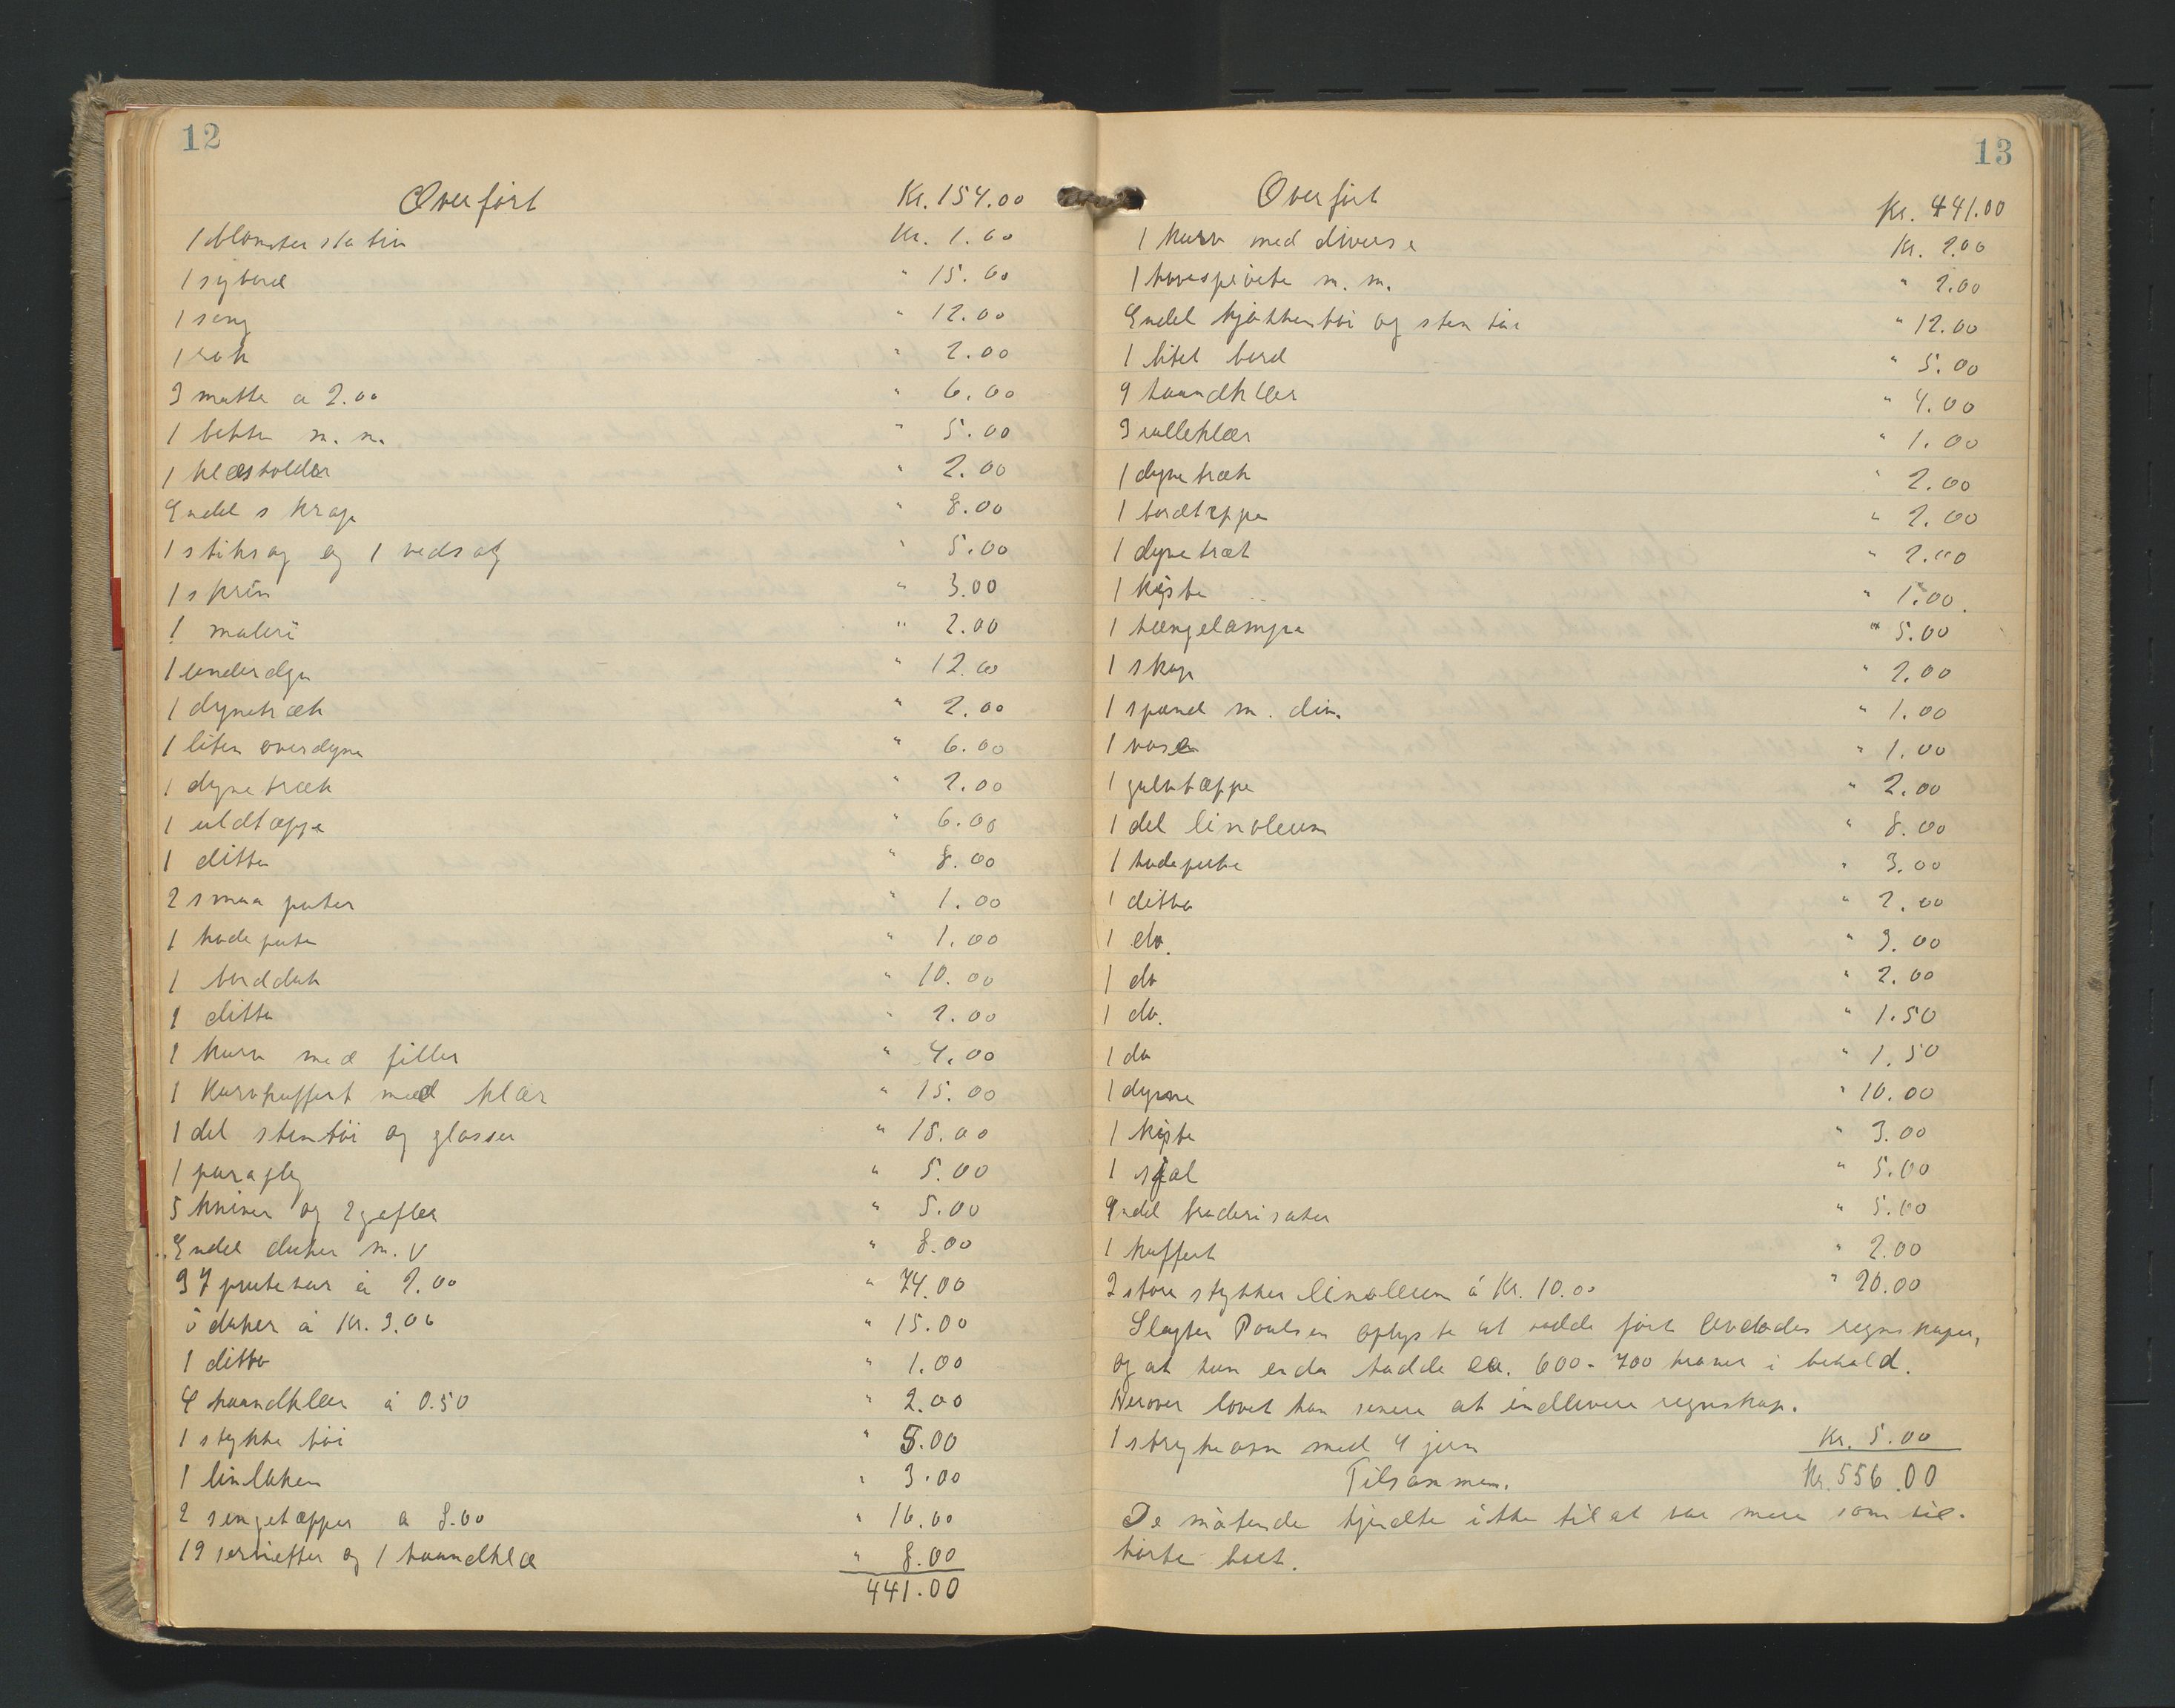 12
Overført Kr. 154.00
1 blomsterstativ Kr. 1.00
1 sybord " 15.00
1 seng " 12.00
1 rok " 2.00
3 matter a 2.00 " 6.00
1 bøtte m. m. " 5.00
1 klæsholder " 2.00
Endel skrap " 8.00
1 stiksag og 1 vedsag " 5.00
1 skrin " 3.00
1 maleri " 2.00
1 underdyne " 12.00
1 dynetræk " 2.00
1 liten overdyne " 6.00
1 dynetræk " 2.00
1 uldtæppe " 6.00
1 ditto " 8.00
2 smaa puter " 1.00
1 hodepute " 1.00
1 bordduk " 10.00
1 ditto " 2.00
1 kurv med filler " 4.00
1 Kurvkuffert med klær " 15.00
1 del stentøi og glasser " 18.00
1 paraply " 5.00
5 kniver og 2 gafler " 5.00
Endel duker m. v " 8.00
37 putevar á 2.00 " 74.00
5 duker á Kr. 3.00 " 15.00
1 ditto " 1.00
4 haandklær á 0.50 " 2.00
1 stykke tøi " 5.00
1 linlaken " 3.00
2 sengetæpper a 8.00 " 16.00
19 servietter og 1 haandklæ " 8.00
441.00
13
Overført Kr. 441.00
1 kurv med diverse Kr. 2.00
1 m. m. " 2.00
Endel kjøkkentøi og stentøi " 12.00
1 litet bord " 5.00
9 haandklær " 4.00
3 rulleklær " 1.00
1 dynetræk " 2.00
1 bordtæppe " 2.00
1 dynetræk " 2.00
1 kiste " 1.00.
1 hængelampe " 5.00
1 skap " 2.00
1 spand m. div. " 1.00
1 vase " 1.00
1 gulvtæppe " 2.00
1 del linoleum " 8.00
1 hodepute " 3.00
1 ditto " 2.00
1 do. " 3.00
1 do " 2.00
1 do. " 1.50
1 do " 1.50
1 dyne " 10.00
1 kiste " 3.00
1 sjal " 5.00
Endel broderisaker " 5.00
1 kuffert " 2.00
2 store stykker linoleum á Kr. 10.00 " 20.00
Slagter Poulsen oplyste at hadde ført avdødes regnskaper,
og at han enda hadde ca. 600-700 kroner i behold.
Herover lovet han senere at indlevere regnskap.
1 strykeovn med 4 jern Kr. 5.00
Tilsammen. Kr. 556.00
De møtende kjendte ikke til at var mere som til-
hørte boet.